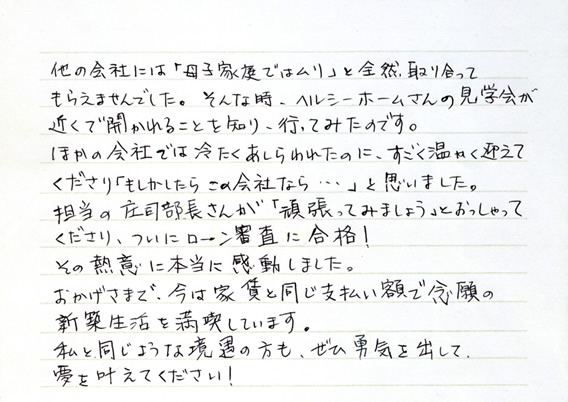 他の会社には「母子家庭ではムリ」と全然取り合って
もらえませんでした。そんな時、ヘルシーホームさんの見学会が
近くで開かれることを知り、行ってみたのです。
ほかの会社では冷たくあしらわれたのに、すごく温かく迎えて
くださり「もしかしたらこの会社なら…」と思いました。
担当の庄司部長さんが「頑張ってみましょう」とおっしゃって
くださり、ついにローン審査に合格!
その熱意に本当に感動しました。
おかげさまで、今は家賃と同じ支払い額で念願の
新築生活を満喫しています。
私と同じような境遇の方も、ぜひ勇気を出して、
夢を叶えてください!